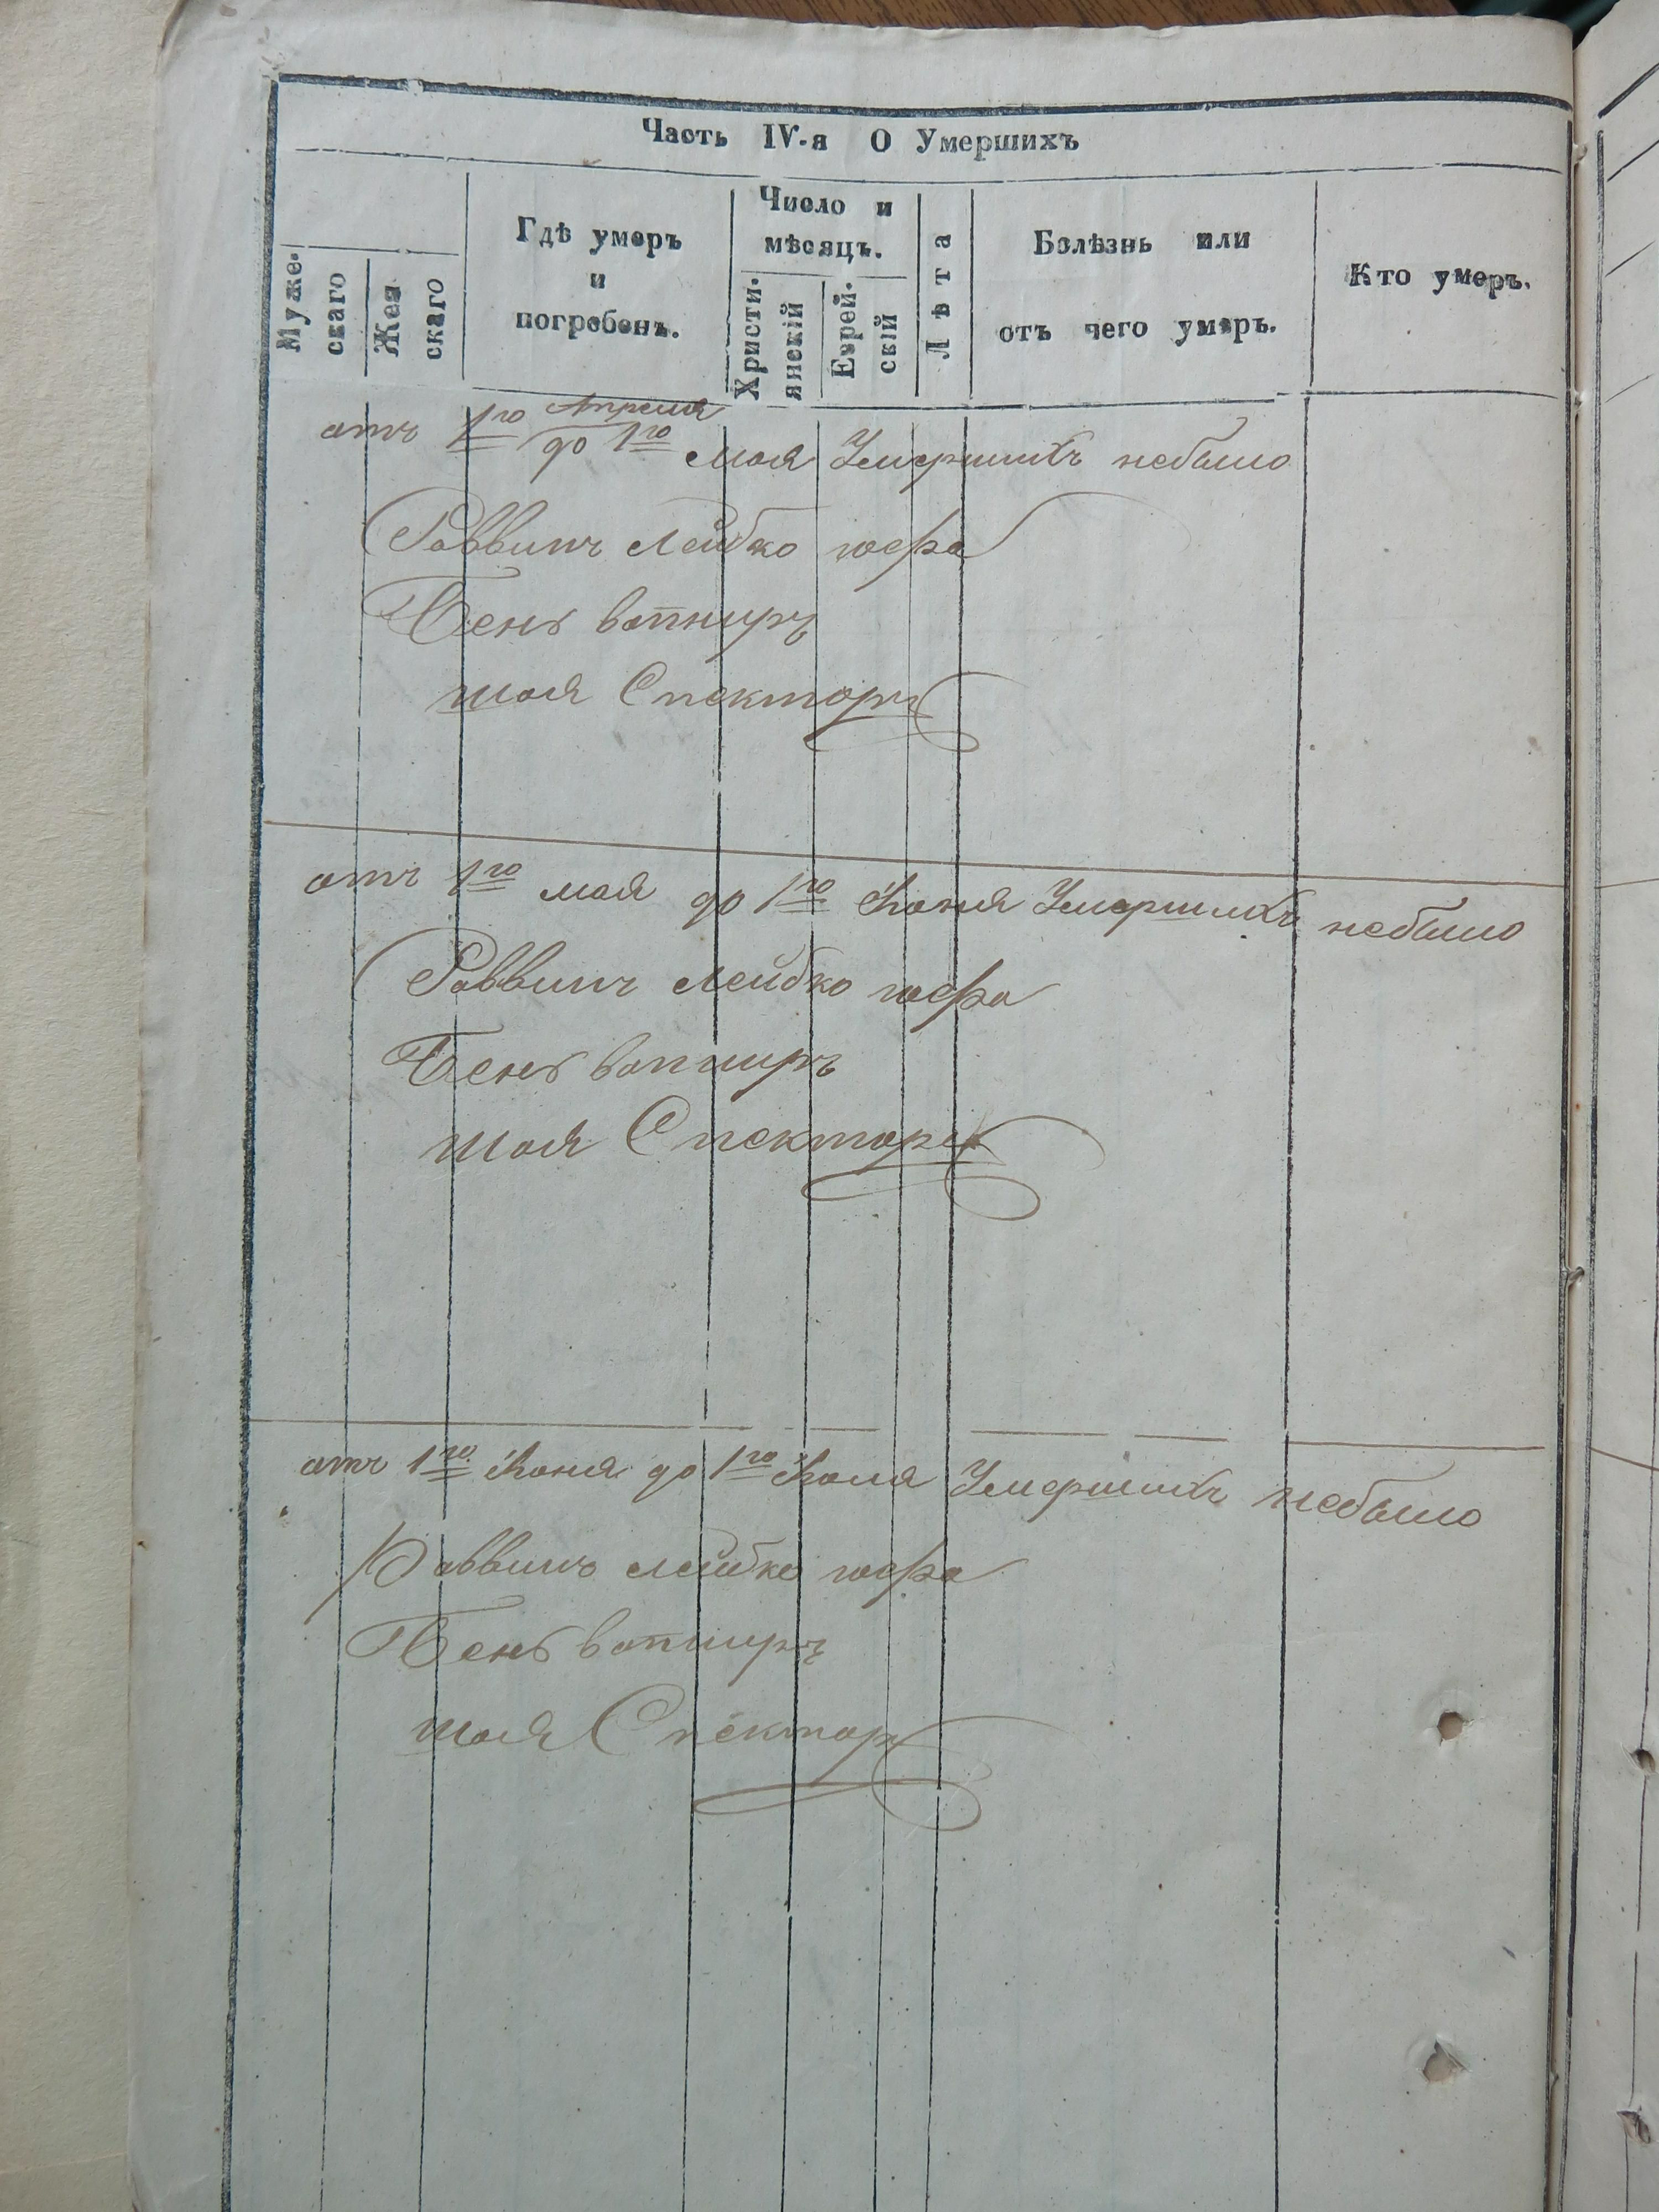 Часть IV-я О Умершихъ
Муже-
скаго
Жен
скаго
Гдѣ умеръ
и
погребенъ.
Число и
мѣсяцъ.
Христі-
янскій
Еврей-
скій
Лѣта
Болѣзнь или
отъ чего умеръ.
Кто умеръ.
отъ 1го Апреля
до 1го мая Умершихъ небыло
Раввинъ Лейбко
Бень вапниръ
шая Спекторъ
отъ 1го мая до 1го Июня Умершихъ небыло
Раввинъ Лейбко
Бень вапниръ
шая Спекторъ
отъ 1го Июня до 1го Июля Умершихъ небыло
Раввинъ Лейбко
Бень вапниръ
шая Спекторъ